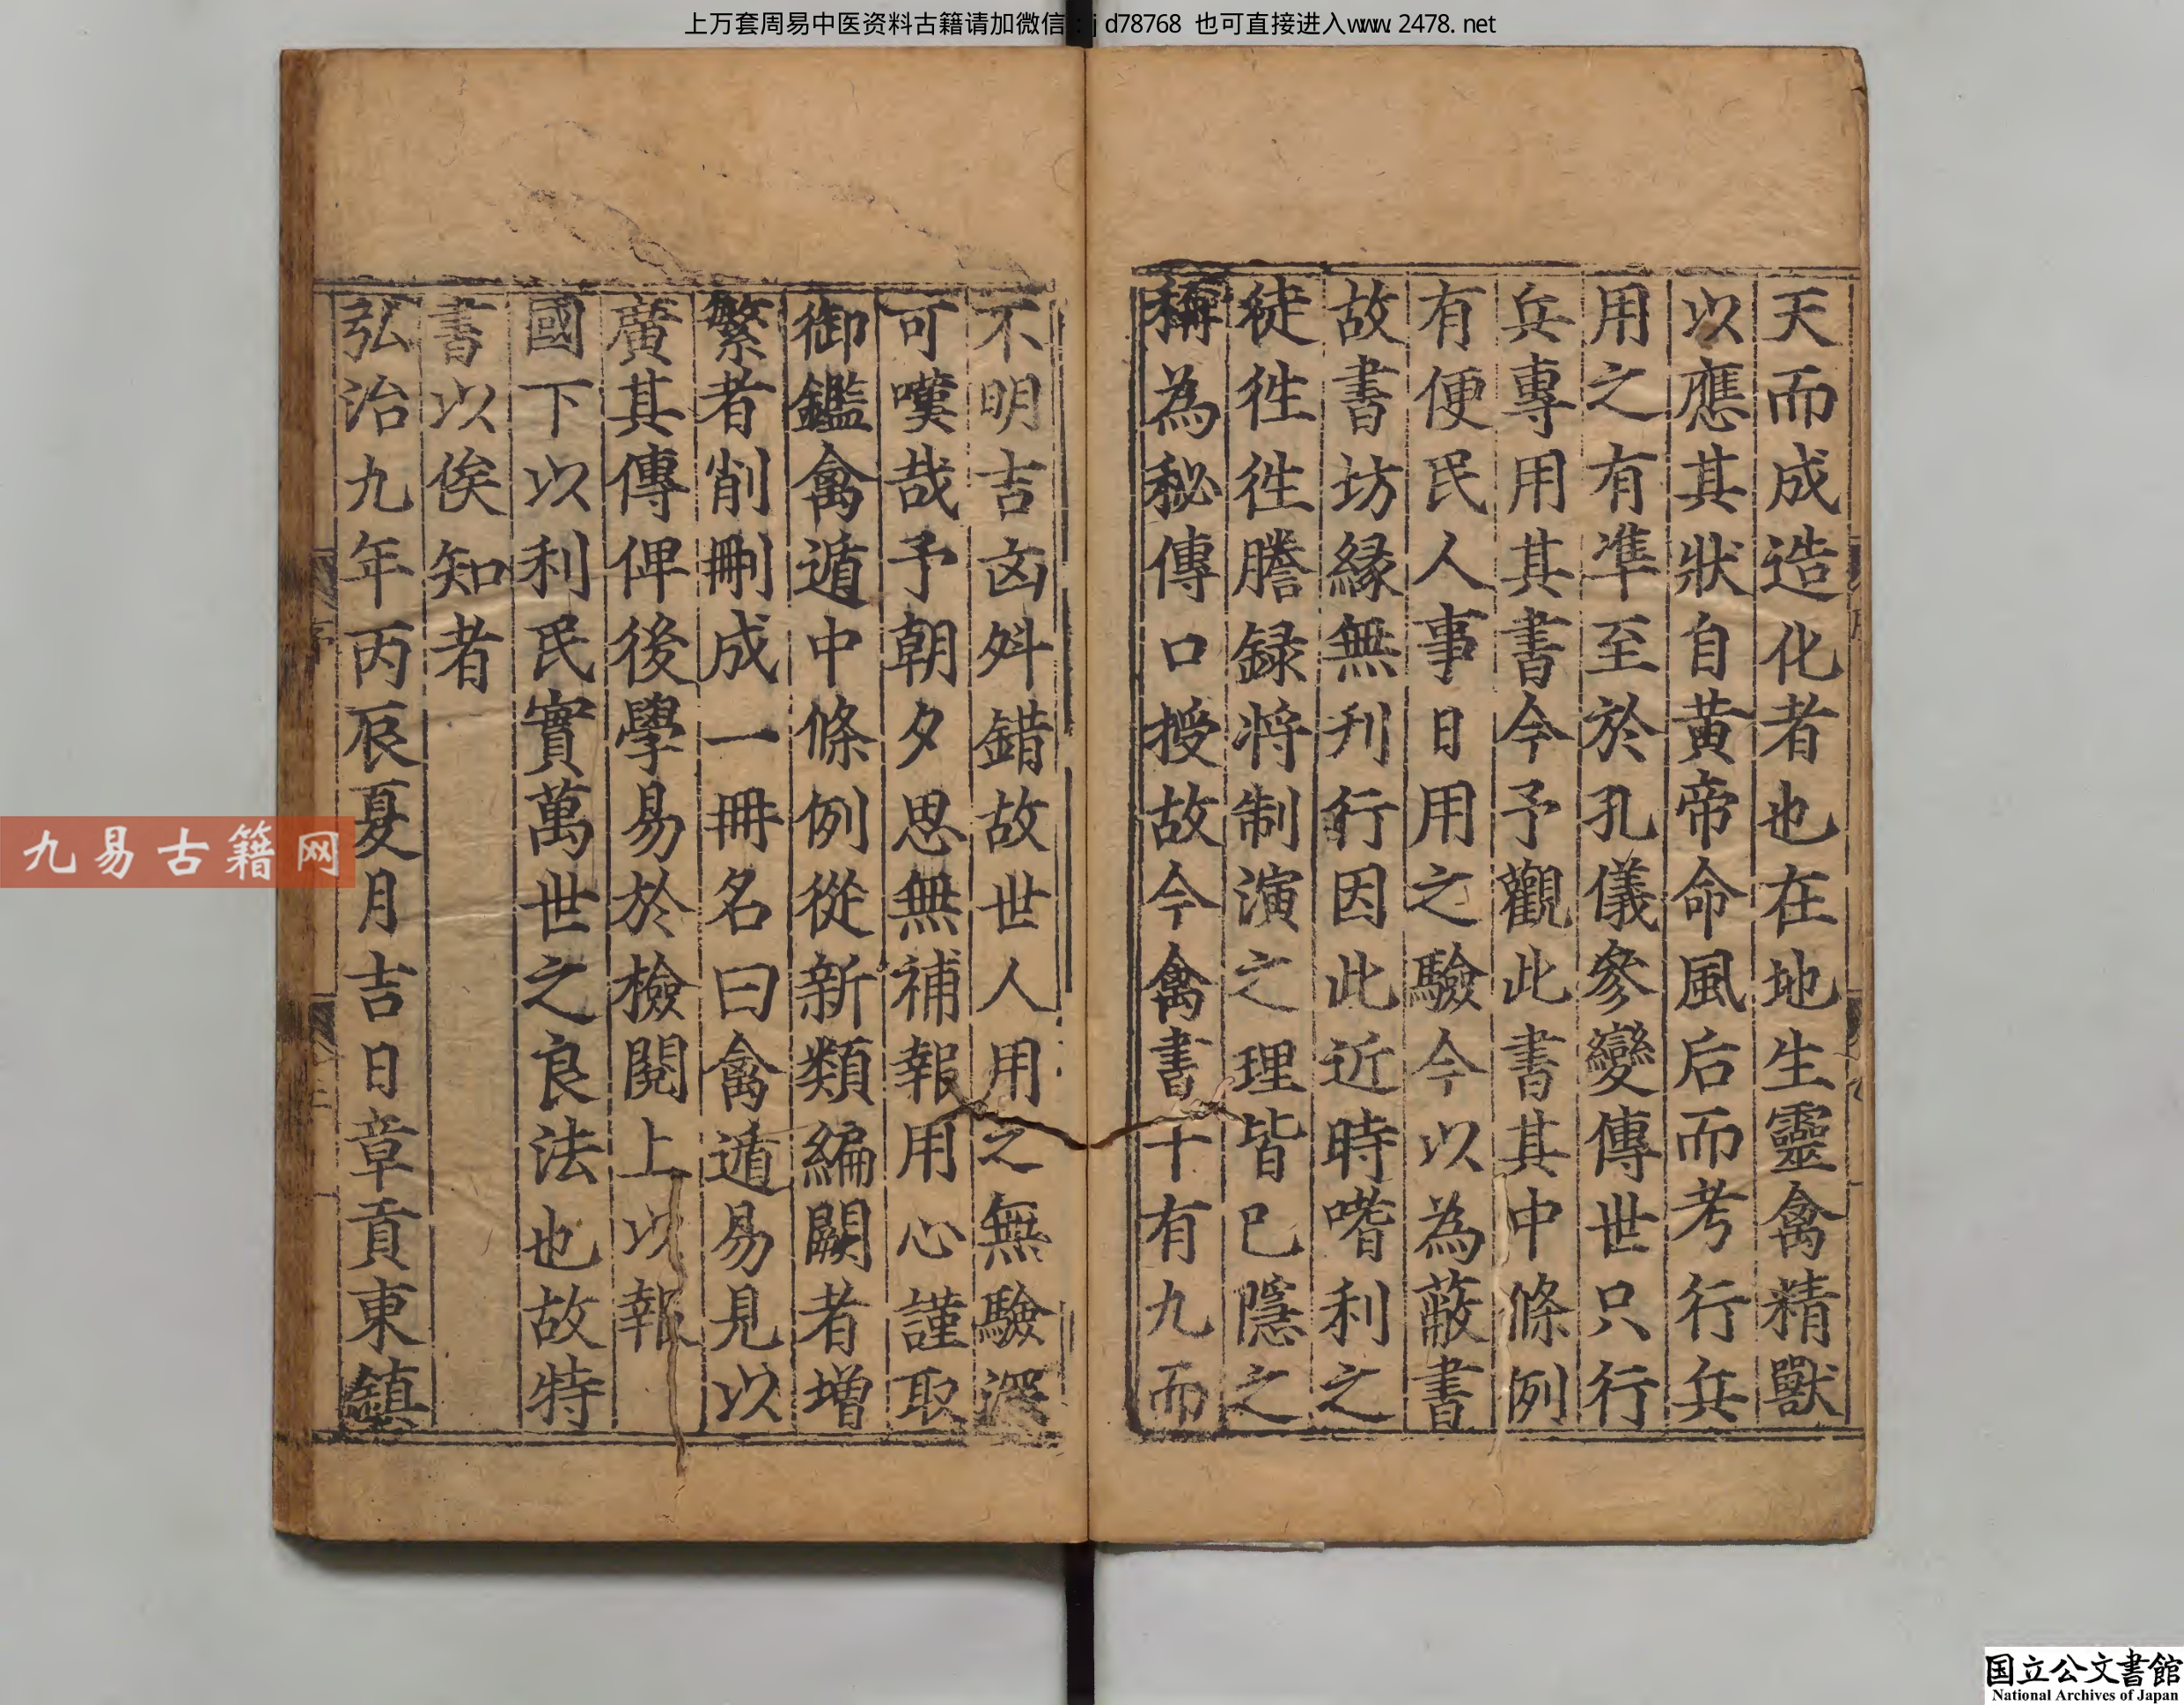 上万套周易中医资料古籍请加微信：jd78768 也可直接进入www.2478.net
天而成造化者也在地生靈禽精獸
以應其狀自黃帝命風后而考行兵
用之有準至於孔儀參變傳世只行
兵專用其書今予觀此書其中條例
有便民人事日用之驗今以為蔽書
故書坊緣無刋行因此近時嗜利之
徒徃徃謄録將制演之理皆已隱之
稱為秘傳口授故今禽書十有九而
不明吉凶舛錯故世人用之無驗深
可嘆哉予朝夕思無補報用心謹取
御鑑禽遁中條例從新類編闕者增
繁者削刪成一冊名曰禽遁易見以
廣其傳俾後學易於檢閱上以報
國下以利民實萬世之良法也故特
書以俟知者
弘治九年丙辰夏月吉日章貢東鎮
九易古籍网
国立公文書館
National Archives of Japan